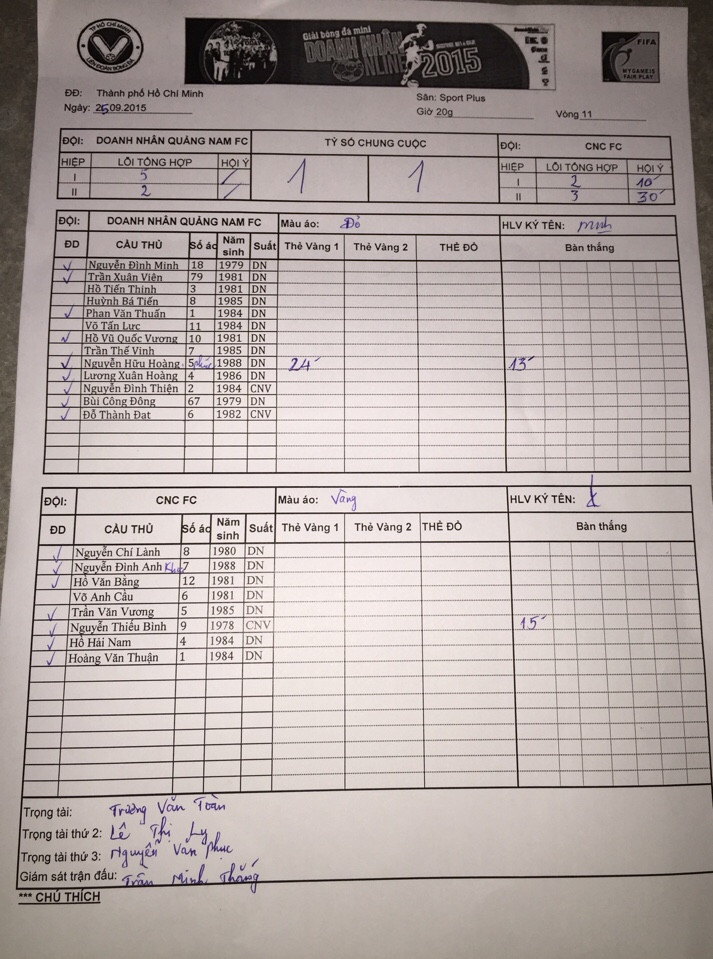 TP HỒ CHÍ MINH
LIÊN ĐOÀN BÓNG ĐÁ
Giải bóng đá mini
DOANH NHÂN
ONLINE 2015
FIFA
MY GAME IS
FAIR PLAY
ĐĐ: Thành phố Hồ Chí Minh
Sân: Sport Plus
Ngày: 25.09.2015
Giờ 20g
Vòng 11
ĐỘI: DOANH NHÂN QUẢNG NAM FC
TỶ SỐ CHUNG CUỘC
ĐỘI: CNC FC
HIỆP LỖI TỔNG HỢP HỘI Ý
1 1
HIỆP LỖI TỔNG HỢP HỘI Ý
I 5 /
I 2 10'
II 2 /
II 3 30'
ĐỘI: DOANH NHÂN QUẢNG NAM FC Màu áo: Đỏ HLV KÝ TÊN: Minh
ĐD CẦU THỦ Số áo Năm sinh Suất Thẻ Vàng 1 Thẻ Vàng 2 THẺ ĐỎ Bàn thắng
✓ Nguyễn Đình Minh 18 1979 DN
✓ Trần Xuân Viên 79 1981 DN
Hồ Tiến Thinh 3 1981 DN
Huỳnh Bá Tiến 8 1985 DN
✓ Phan Văn Thuấn 1 1984 DN
Võ Tấn Lực 11 1984 DN
✓ Hồ Vũ Quốc Vương 10 1981 DN
Trần Thế Vinh 7 1985 DN
✓ Nguyễn Hữu Hoàng 5 1988 DN 24' 13'
✓ Lương Xuân Hoàng 4 1986 DN
✓ Nguyễn Đình Thiện 2 1984 CNV
✓ Bùi Công Đông 67 1979 DN
✓ Đỗ Thành Đạt 6 1982 CNV
ĐỘI: CNC FC Màu áo: Vàng HLV KÝ TÊN:
ĐD CẦU THỦ Số áo Năm sinh Suất Thẻ Vàng 1 Thẻ Vàng 2 THẺ ĐỎ Bàn thắng
✓ Nguyễn Chí Lành 8 1980 DN
✓ Nguyễn Đình Anh Khoa 7 1988 DN
✓ Hồ Văn Bảng 12 1981 DN
Võ Anh Cầu 6 1981 DN
✓ Trần Văn Vương 5 1985 DN
✓ Nguyễn Thiếu Bình 9 1978 CNV 15'
✓ Hồ Hải Nam 4 1984 DN
✓ Hoàng Văn Thuận 1 1984 DN
Trọng tài: Trương Văn Toàn
Trọng tài thứ 2: Lê Thị Ly
Trọng tài thứ 3: Nguyễn Văn Phúc
Giám sát trận đấu: Trần Minh Thắng
*** CHÚ THÍCH